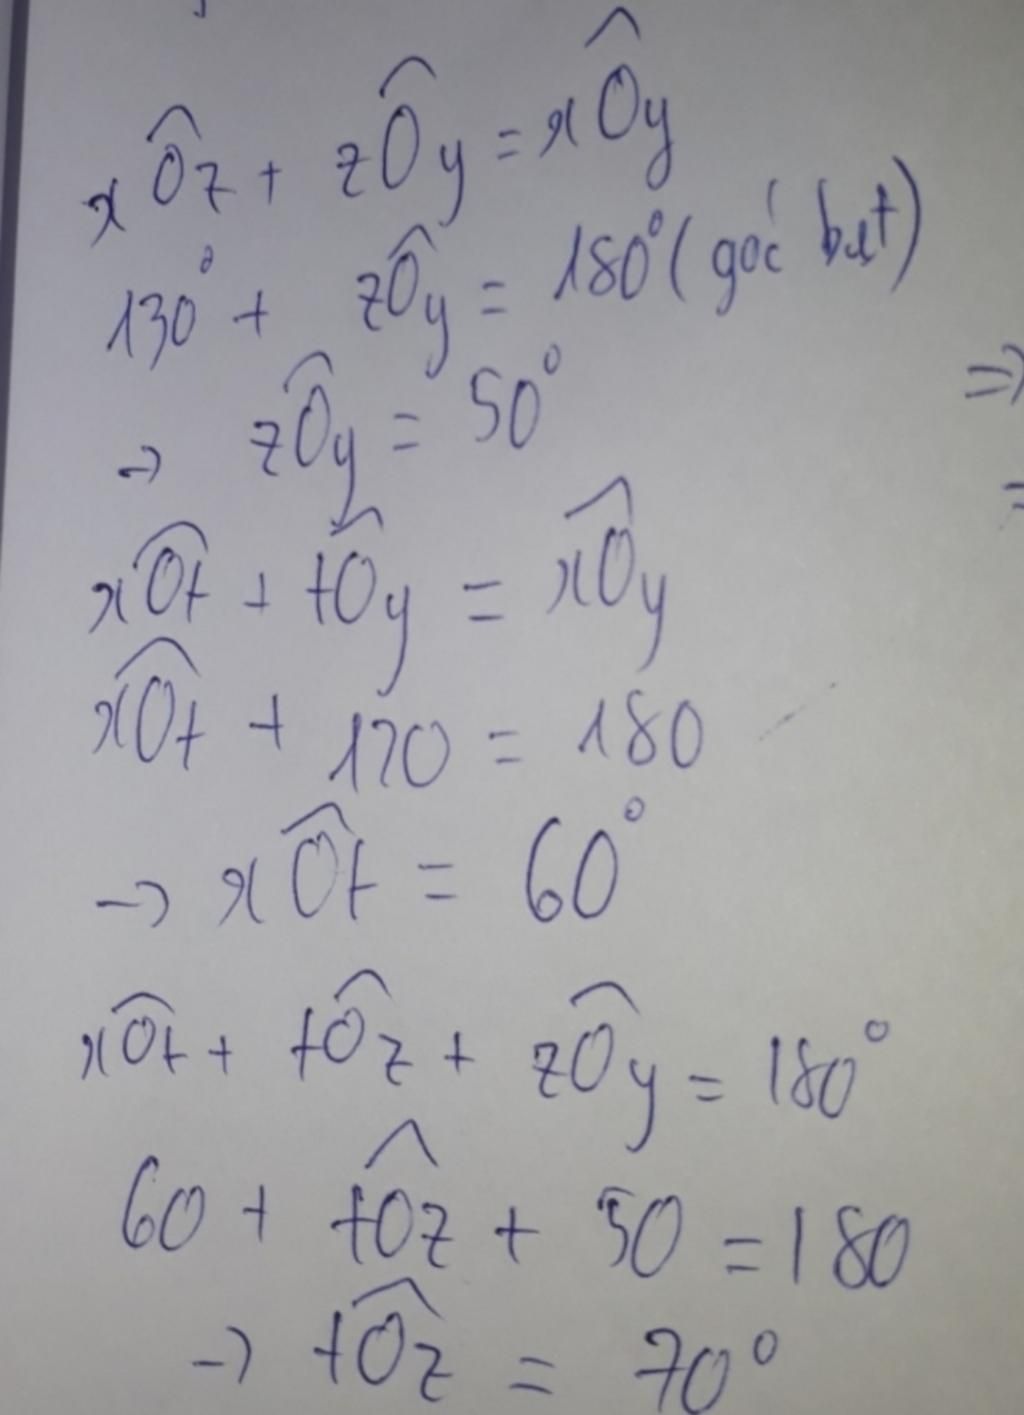 xÔz + zÔy = xÔy
130° + zÔy = 180° (góc bẹt)
→ zÔy = 50°
⇒
=
xÔt + tÔy = xÔy
xÔt + 120 = 180
→ xÔt = 60°
xÔt + tÔz + zÔy = 180°
60 + tÔz + 50 = 180
→ tÔz = 70°